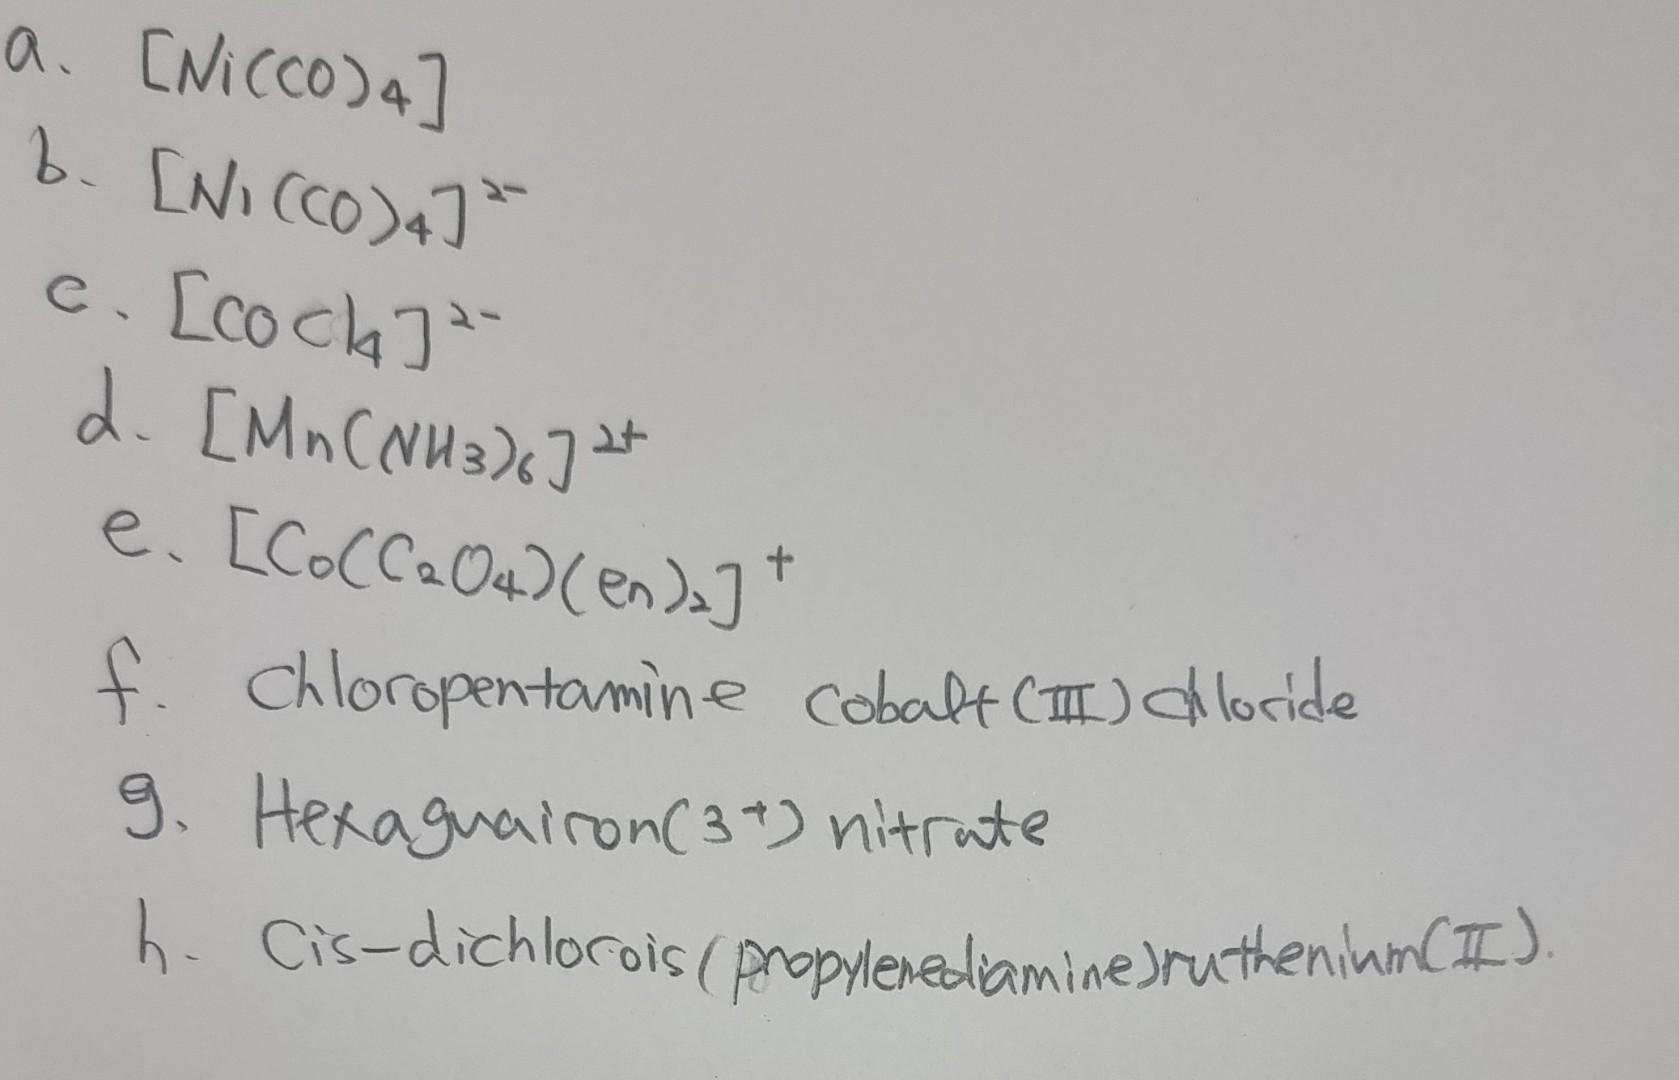 a. [Ni(CO)4]
b. [Ni(CO)4]2-
c. [COCl4]2-
d. [Mn(NH3)6]2+
e. [Co(C2O4)(en)2]+
f. Chloropentamine cobalt(III) chloride
g. Hexaquairon(3+) nitrate
h. Cis-dichlorois(propylenediamine)ruthenium(II).